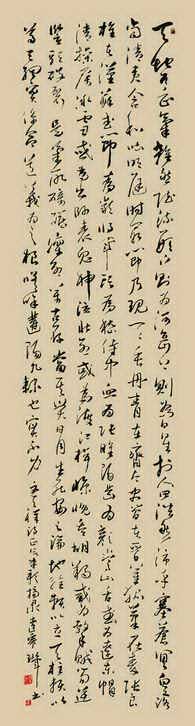 天地有正氣雜然賦流形下則為河嶽上則為日星於人曰浩然沛乎塞蒼冥皇路
當清夷含和吐明庭時窮節乃見一一垂丹青在齊太史簡在晉董狐筆在秦張良
椎在漢蘇武節為嚴將軍頭為嵇侍中血為張睢陽齒為顏常山舌或為遼東帽
清操厲冰雪或為出師表鬼神泣壯烈或為渡江楫慷慨吞胡羯或為擊賊笏逆
豎頭破裂是氣所磅礴凜烈萬古存當其貫日月生死安足論地維賴以立天柱賴以
尊三綱實繫命道義為之根嗟予遘陽九隸也實不力 文天祥詩正氣歌 書